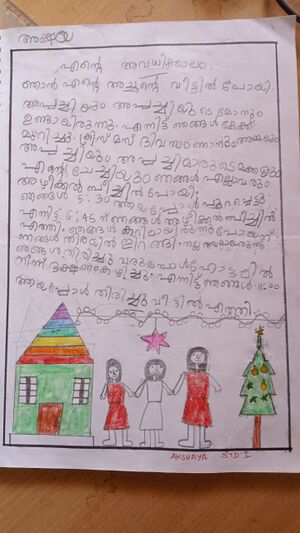 അക്ഷയ
എന്റെ അവധിക്കാലം.
ഞാൻ എന്റെ അച്ഛന്റെ വീട്ടിൽ പോയി.
അപ്പച്ചിയും അപ്പച്ചിയുടെ മോനും
ഉണ്ടായിരുന്നു. എന്നിട്ട് ഞങ്ങൾ കേക്ക്
മുറിച്ചു. ക്രിസ്മസ് ദിവസം ഞാനും അമ്മയും
അപ്പച്ചിയും അപ്പച്ചിമാരുടെ മക്കളും
ചേച്ചിയും ഞങ്ങൾ എല്ലാവരും
അഴീക്കൽ ബീച്ചിൽ പോയി.
ഞങ്ങൾ 5.30 ആയപ്പോൾ പുറപ്പെട്ടു
എന്നിട്ട് 6.45 ന് ഞങ്ങൾ അഴീക്കൽ ബീച്ചിൽ
എത്തി. ഞങ്ങൾ കാറിലായിരുന്നു പോയത്
ഞങ്ങൾ തിരയിൽ ഇറങ്ങി. നല്ല
ഞങ്ങൾ തിരിച്ചു വരുമ്പോൾ ഹോട്ടലിൽ
നിന്ന് ഭക്ഷണം കഴിച്ചു. എന്നിട്ട് ഞങ്ങൾ 11:00
ആയപ്പോൾ തിരിച്ചു വീട്ടിൽ എത്തി.
AKSHAYA STD-I